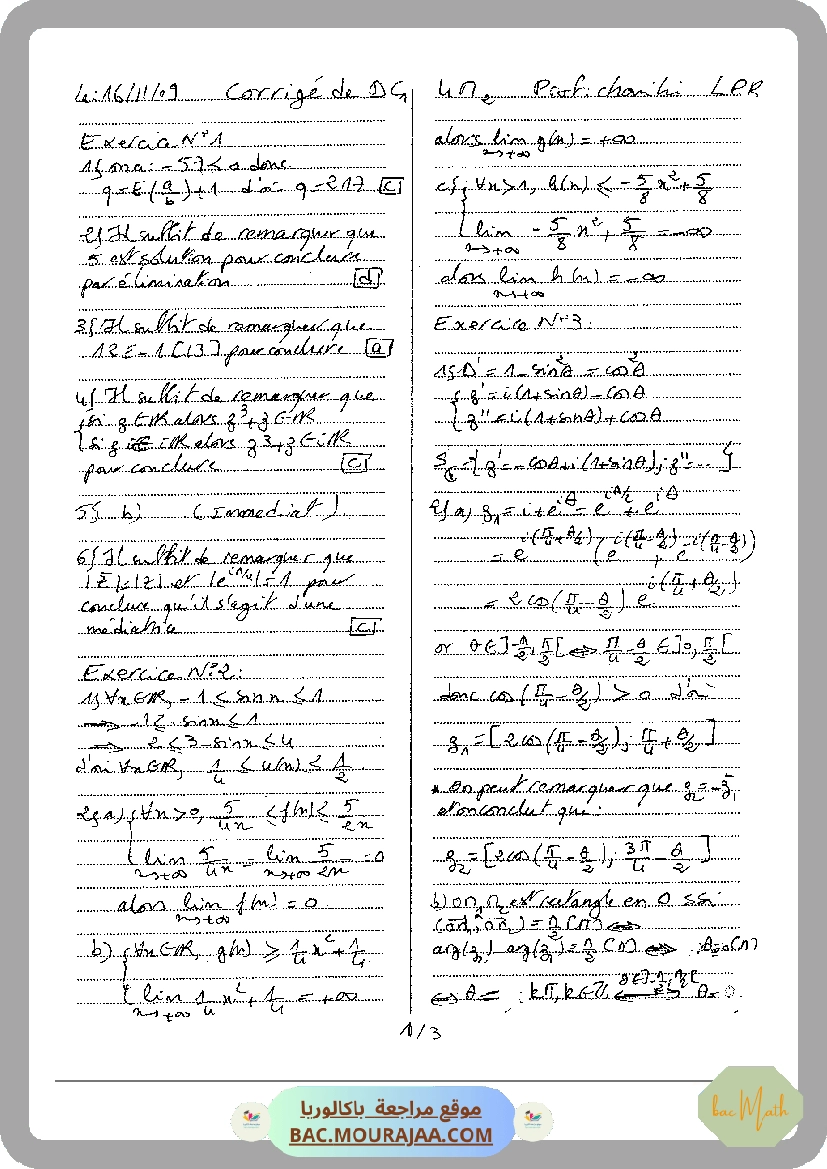 Le: 16/11/09 Corrigé de DC1
Exercice N°1
1) on a: -57 < 0 donc
q = E(a/b)+1 d'où q = -217 [c]
2) Il suffit de remarquer que
5 est solution pour conclure
par élimination [d]
3) Il suffit de remarquer que
12 ≡ -1 [13] pour conclure [a]
4) Il suffit de remarquer que
si z ∈ IR alors z³+z ∈ IR
si z ∈ iIR alors z³+z ∈ iIR
pour conclure [c]
5) b) (Immédiat)
6) Il suffit de remarquer que
|z̄|=|z| et |e^(iπ/4)|=1 pour
conclure qu'il s'agit d'une
médiatrice [c]
Exercice N°2:
1) ∀x∈IR, -1 ≤ sin x ≤ 1
⇒ -1 ≤ -sin x ≤ 1
⇒ 2 ≤ 3-sin x ≤ 4
d'où ∀x∈IR, 1/4 ≤ u(x) ≤ 1/2
2) a) ∀x>0, 5/4x ≤ f(x) ≤ 5/2x
lim x→+∞ 5/4x = lim x→+∞ 5/2x = 0
alors lim x→+∞ f(x) = 0
b) ∀x∈IR, g(x) ≥ 1/4 x² + 1/4
lim x→+∞ 1/4 x² + 1/4 = +∞
4M2 Prof: chanihi LPR
alors lim x→+∞ g(x) = +∞
c) ∀x>1, h(x) ≤ -5/8 x² + 5/8
lim x→+∞ -5/8 x² + 5/8 = -∞
alors lim x→+∞ h(x) = -∞
Exercice N°3:
1) Δ' = 1 - sin²θ = cos²θ
z' = i(1+sinθ) - cosθ
z'' = i(1+sinθ) + cosθ
S_ℂ = {z' = -cosθ + i(1+sinθ); z'' = ...}
2) a) z₁ = i + e^(iθ) = e^(iπ/2) + e^(iθ)
= e^(i(π/4+θ/2)) (e^(i(π/4-θ/2)) + e^(-i(π/4-θ/2)))
= 2cos(π/4 - θ/2) e^(i(π/4+θ/2))
or θ ∈ ]-π/2, π/2[ ⇔ π/4 - θ/2 ∈ ]0, π/2[
donc cos(π/4 - θ/2) > 0 d'où
z₁ = [2cos(π/4 - θ/2); π/4 + θ/2]
* On peut remarquer que z₂ = -z̄₁
et on conclut que:
z₂ = [2cos(π/4 - θ/2); 3π/4 - θ/2]
b) OM₁M₂ est rectangle en O ssi
(OM₁, OM₂) ≡ π/2 (π) ⇔
arg(z₂) - arg(z₁) ≡ π/2 (π) ⇔ -θ ≡ 0 (π)
⇔ θ = kπ, k∈Z ⇔ θ = 0
1/3
موقع مراجعة باكالوريا
BAC.MOURAJAA.COM
bac Math